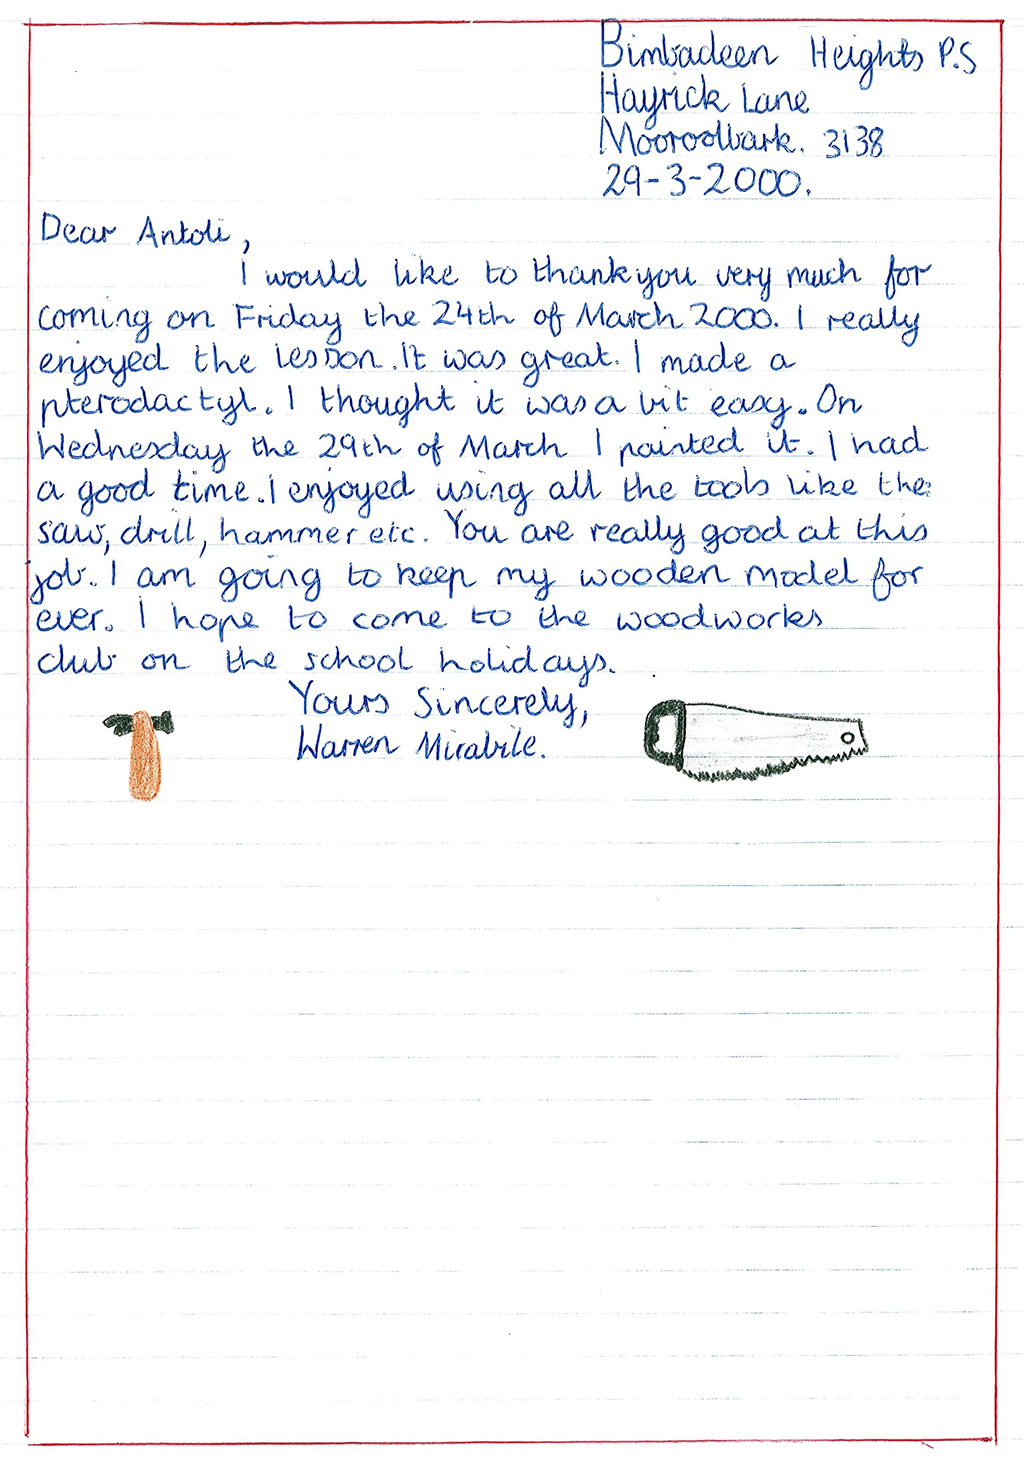 Bimbadeen Heights P.S
Hayrick Lane
Mooroolbark. 3138
29-3-2000.
Dear Antoli,
I would like to thankyou very much for
coming on Friday the 24th of March 2000. I really
enjoyed the lesson. It was great. I made a
pterodactyl. I thought it was a bit easy. On
Wednesday the 29th of March I painted it. I had
a good time. I enjoyed using all the tools like the
saw, drill, hammer etc. You are really good at this
job. I am going to keep my wooden model for
ever. I hope to come to the woodworks
club on the school holidays.
Yours Sincerely,
Warren Mirabile.